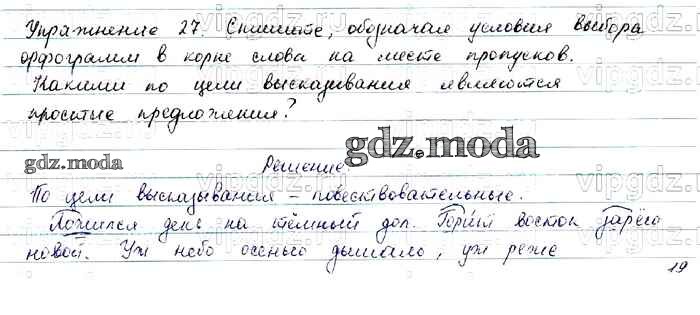 Упражнение 27. Спишите, обозначая условия выбора
орфограмм в корне слова на месте пропусков.
Какими по цели высказывания являются
простые предложения?
gdz.moda
gdz.moda
Решение.
По цели высказывания – повествовательные.
Ложился день на тёмный дол. Горит восток зарёю
новой. Уж небо осенью дышало, уж реже
19